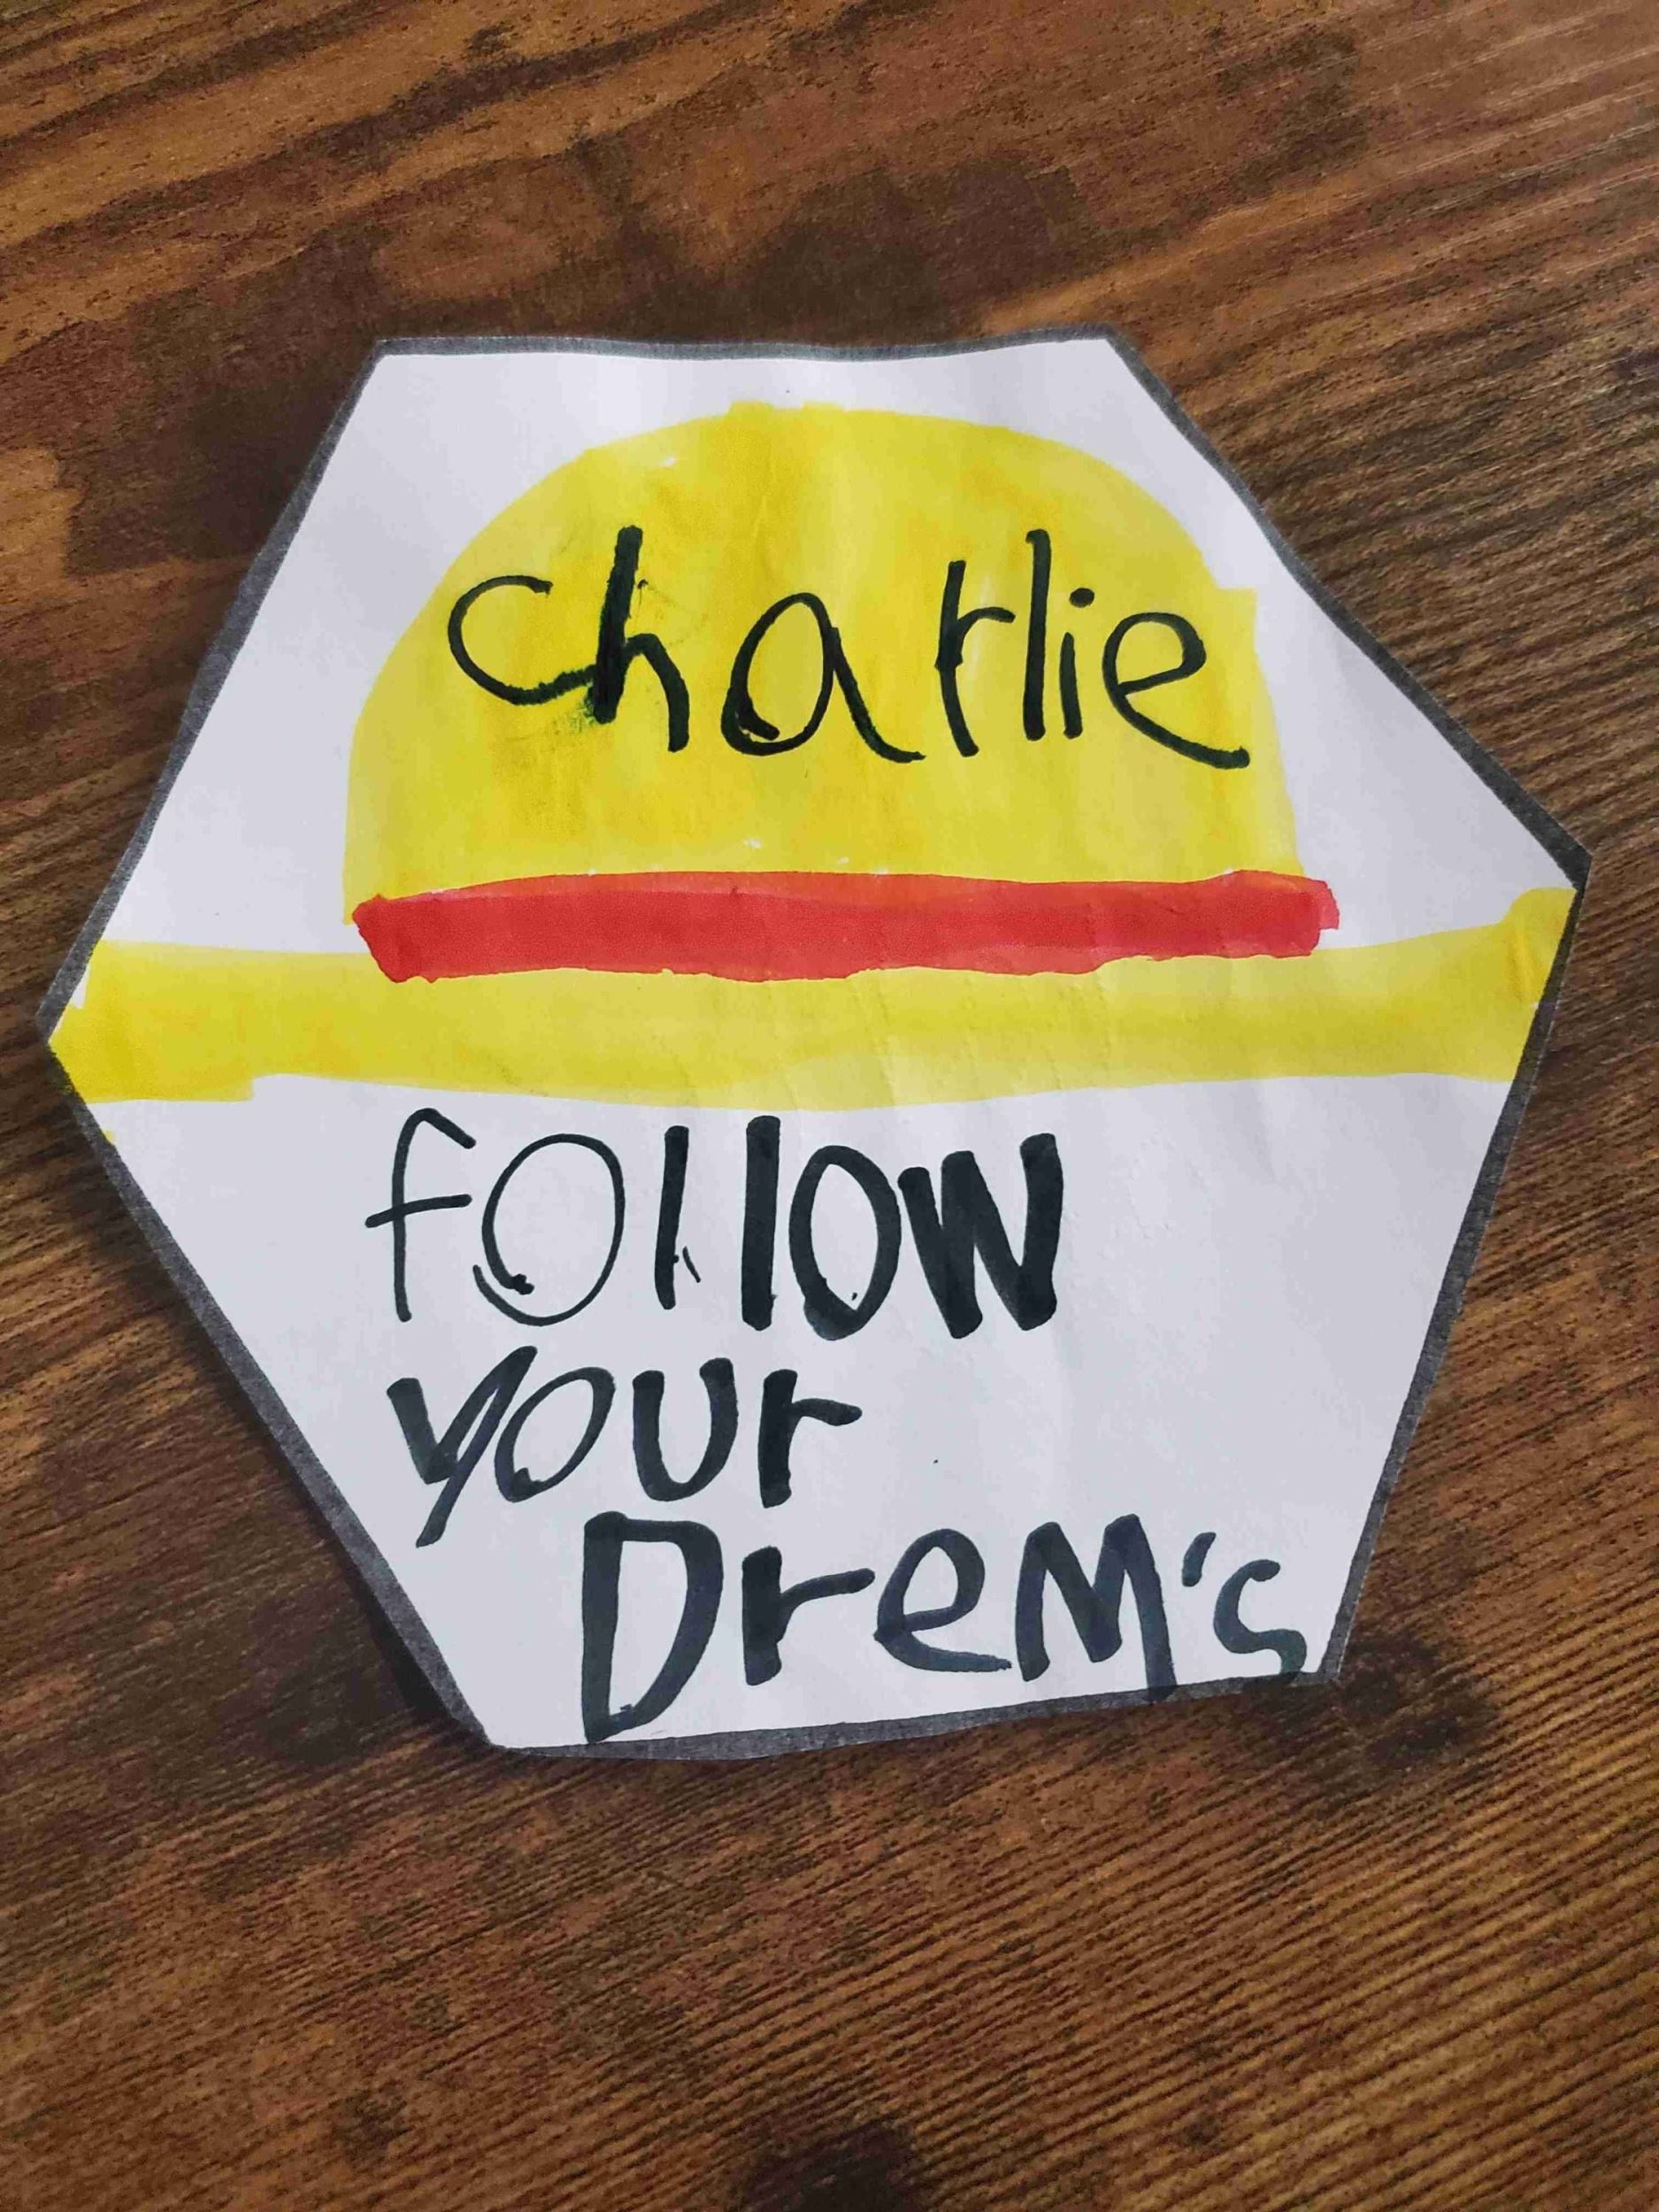 charlie
follow
your
Drem's